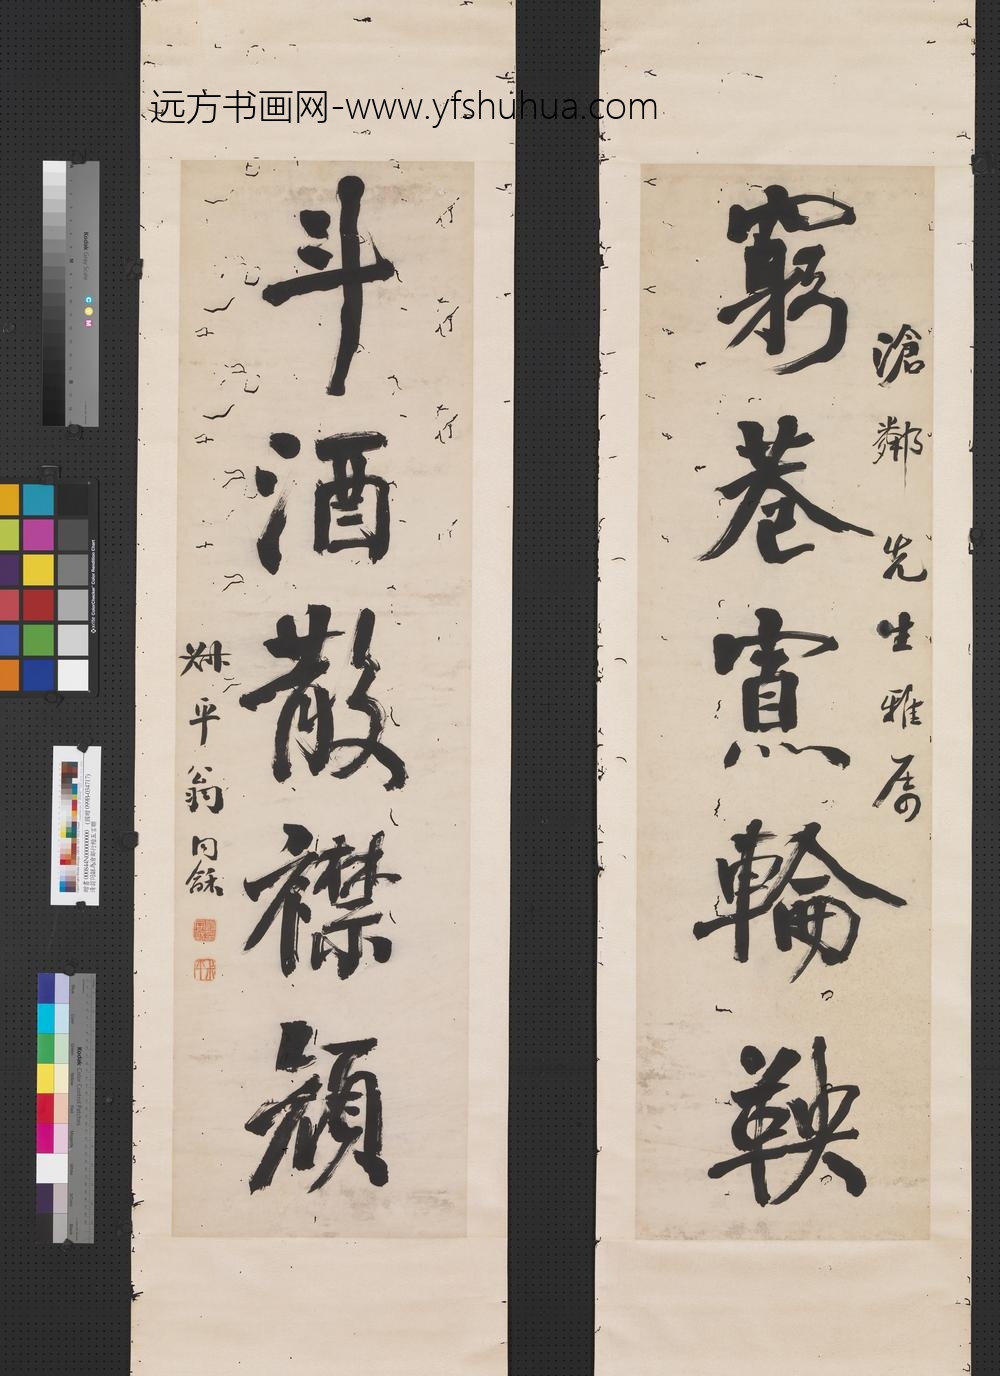 远方书画网-www.yfshuhua.com
滄鄰先生雅屬
窮巷寡輪鞅
斗酒散襟顏
叔平翁同龢